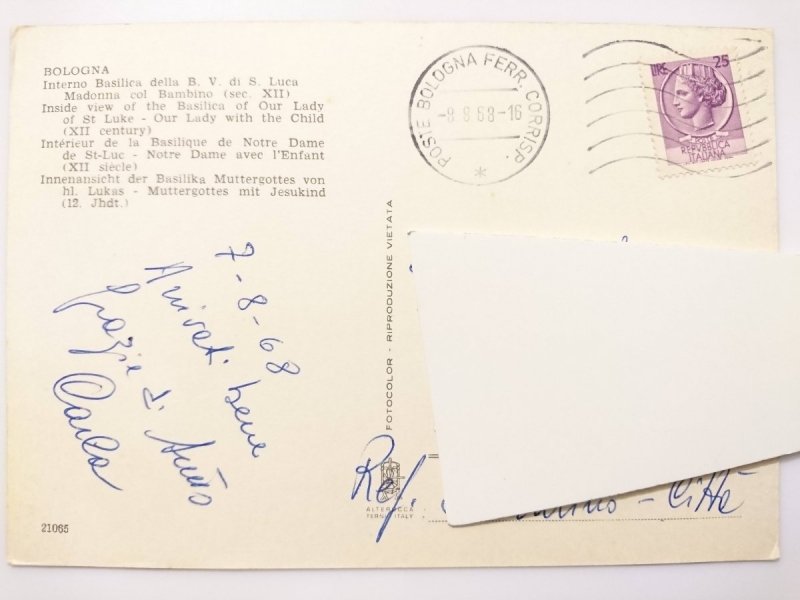 BOLOGNA
Interno Basilica della B. V. di S. Luca
Madonna col Bambino (sec. XII)
Inside view of the Basilica of Our Lady
of St Luke - Our Lady with the Child
(XII century)
Intérieur de la Basilique de Notre Dame
de St-Luc - Notre Dame avec l'Enfant
(XII siècle)
Innenansicht der Basilika Muttergottes von
hl. Lukas - Muttergottes mit Jesukind
(12. Jhdt.)
POSTE BOLOGNA FERR. CORRISP.
-9.8.68-16
*
LIRE 25
POSTE
REPVBBLICA
ITALIANA
7-8-68
Arrivati bene
Grazie di tutto
Carla
FOTOCOLOR - RIPRODUZIONE VIETATA
Ref.
- Città
ALTEROCCA
TERNI ITALY
21065